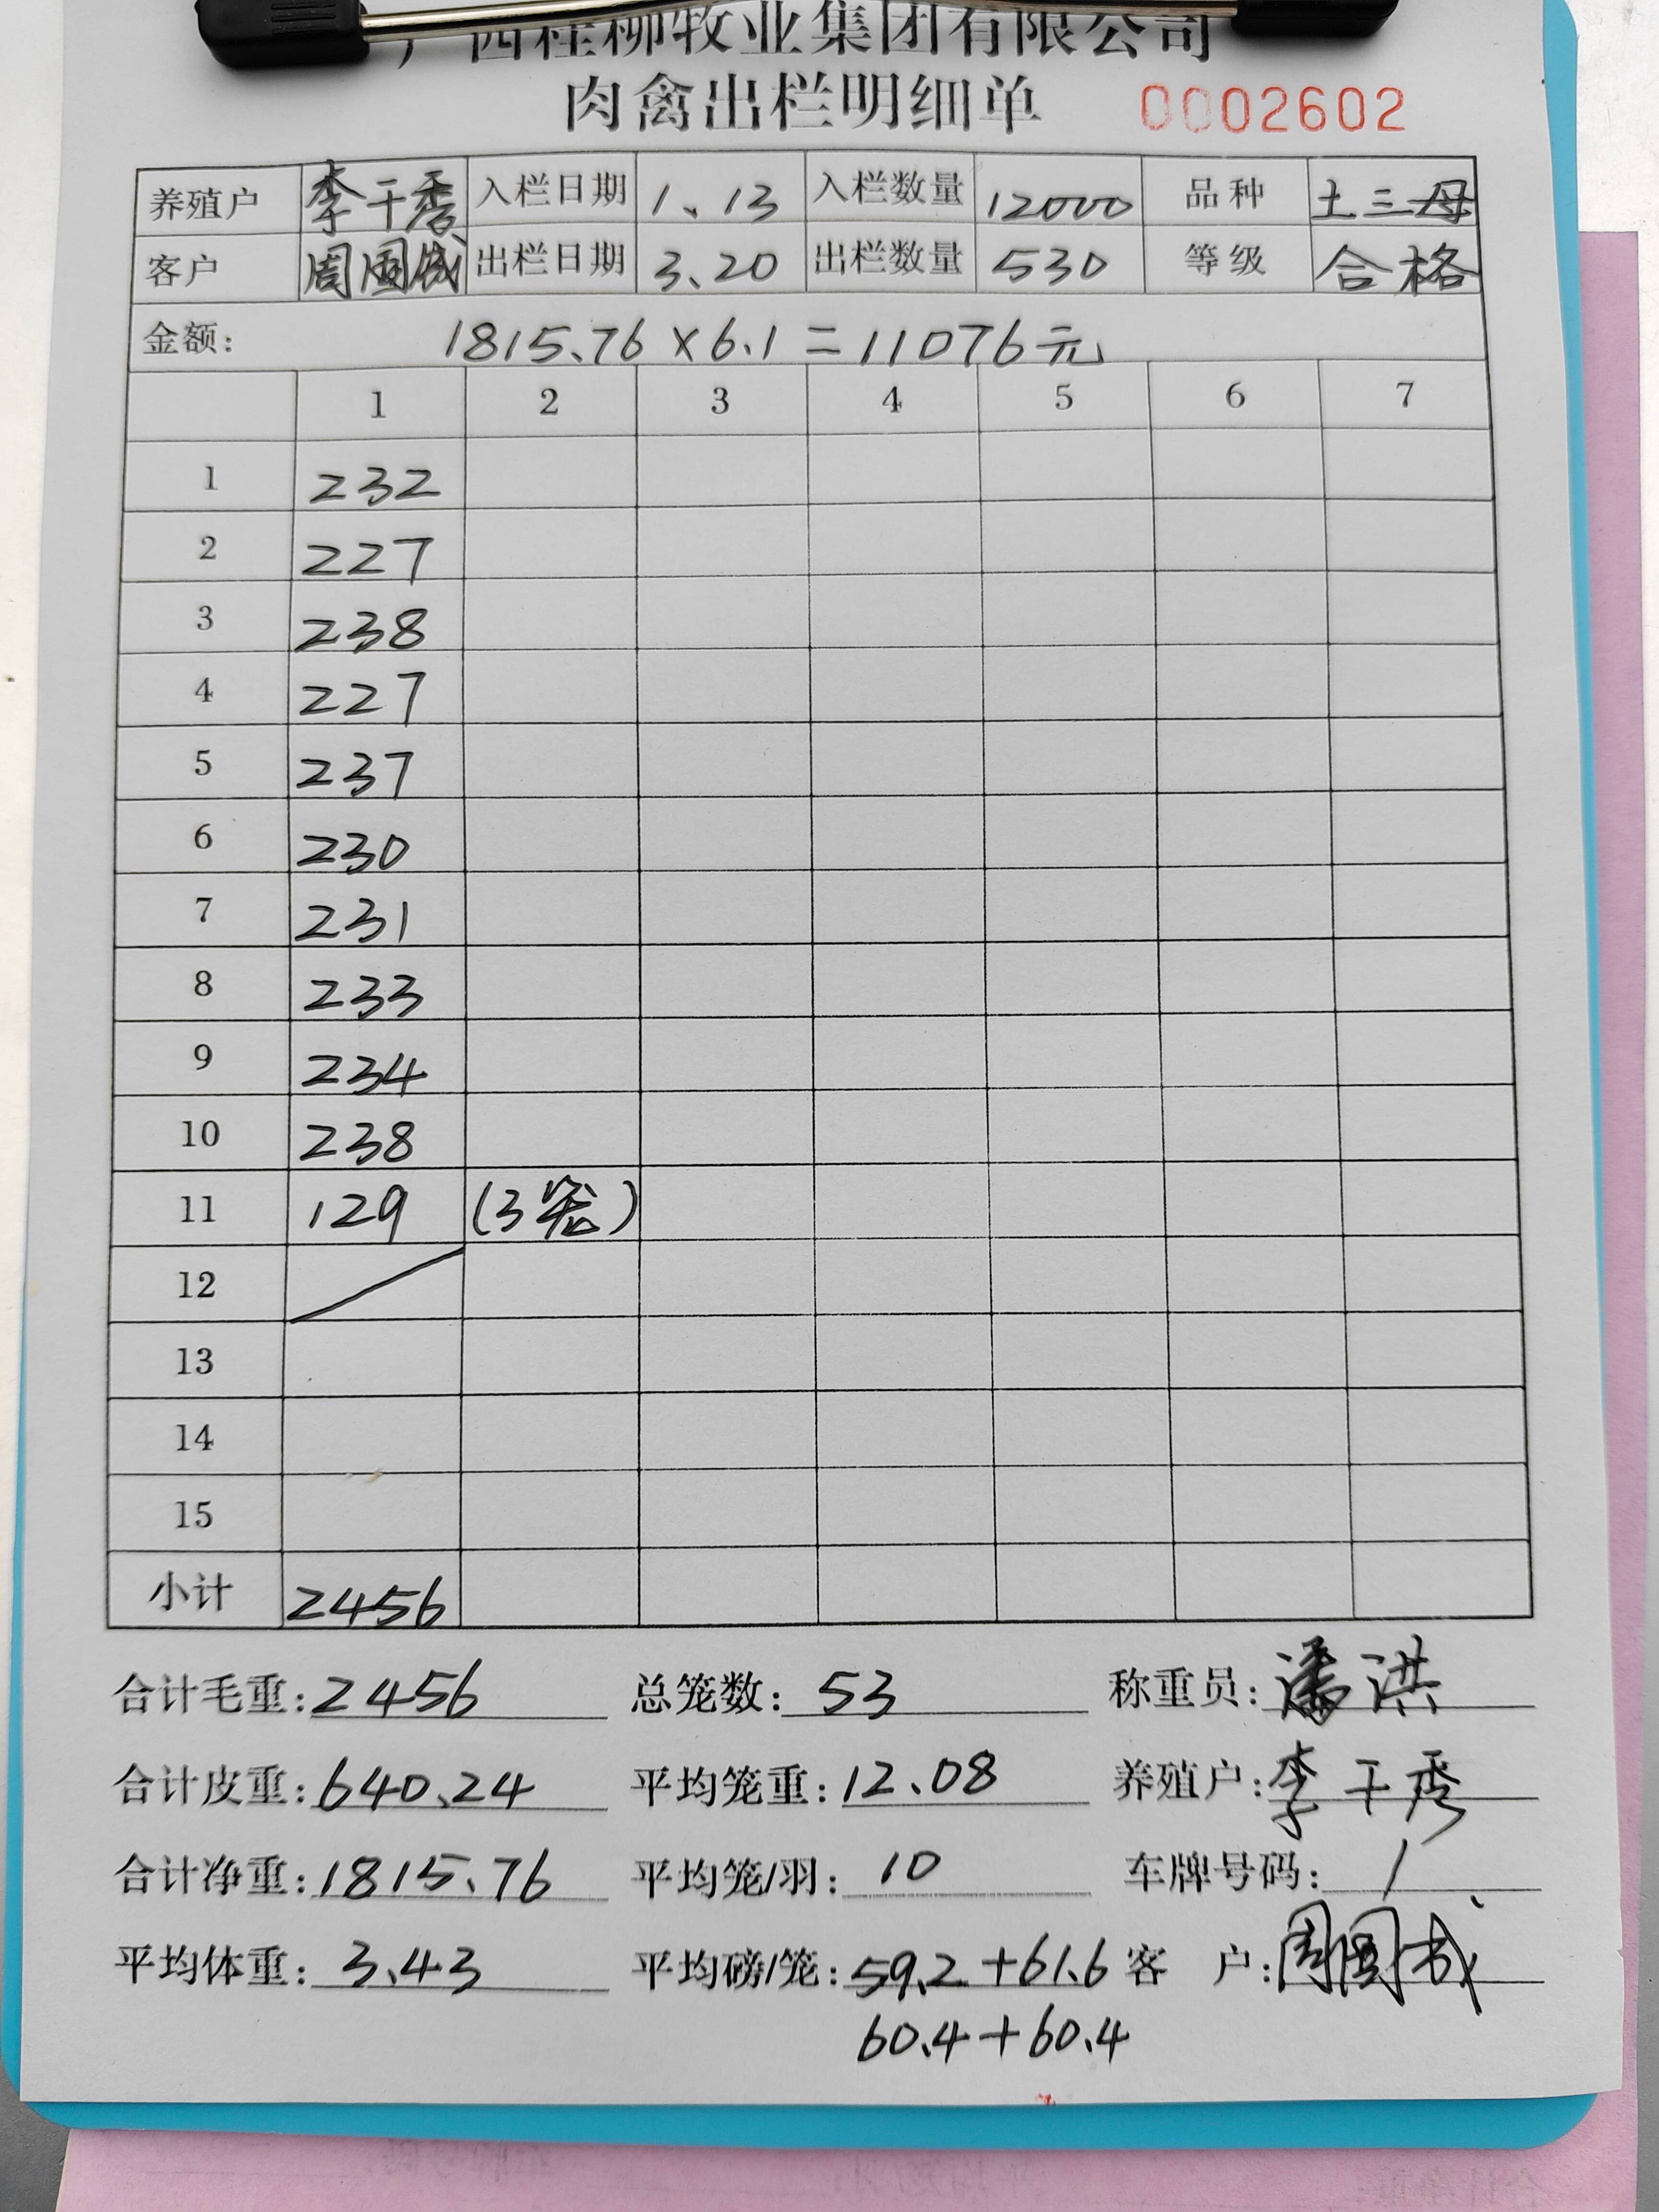 广西桂柳牧业集团有限公司
肉禽出栏明细单 0002602
养殖户 李干秀 入栏日期 1.13 入栏数量 12000 品种 土三母
客户 周国成 出栏日期 3.20 出栏数量 530 等级 合格
金额: 1815.76×6.1=11076元
1 2 3 4 5 6 7
1 232
2 227
3 238
4 227
5 237
6 230
7 231
8 233
9 234
10 238
11 129 (3笼)
12
13
14
15
小计 2456
合计毛重:2456 总笼数:53 称重员:潘洪
合计皮重:640.24 平均笼重:12.08 养殖户:李干秀
合计净重:1815.76 平均笼/羽:10 车牌号码:/
平均体重:3.43 平均磅/笼:59.2+61.6 客 户:周国成
60.4+60.4